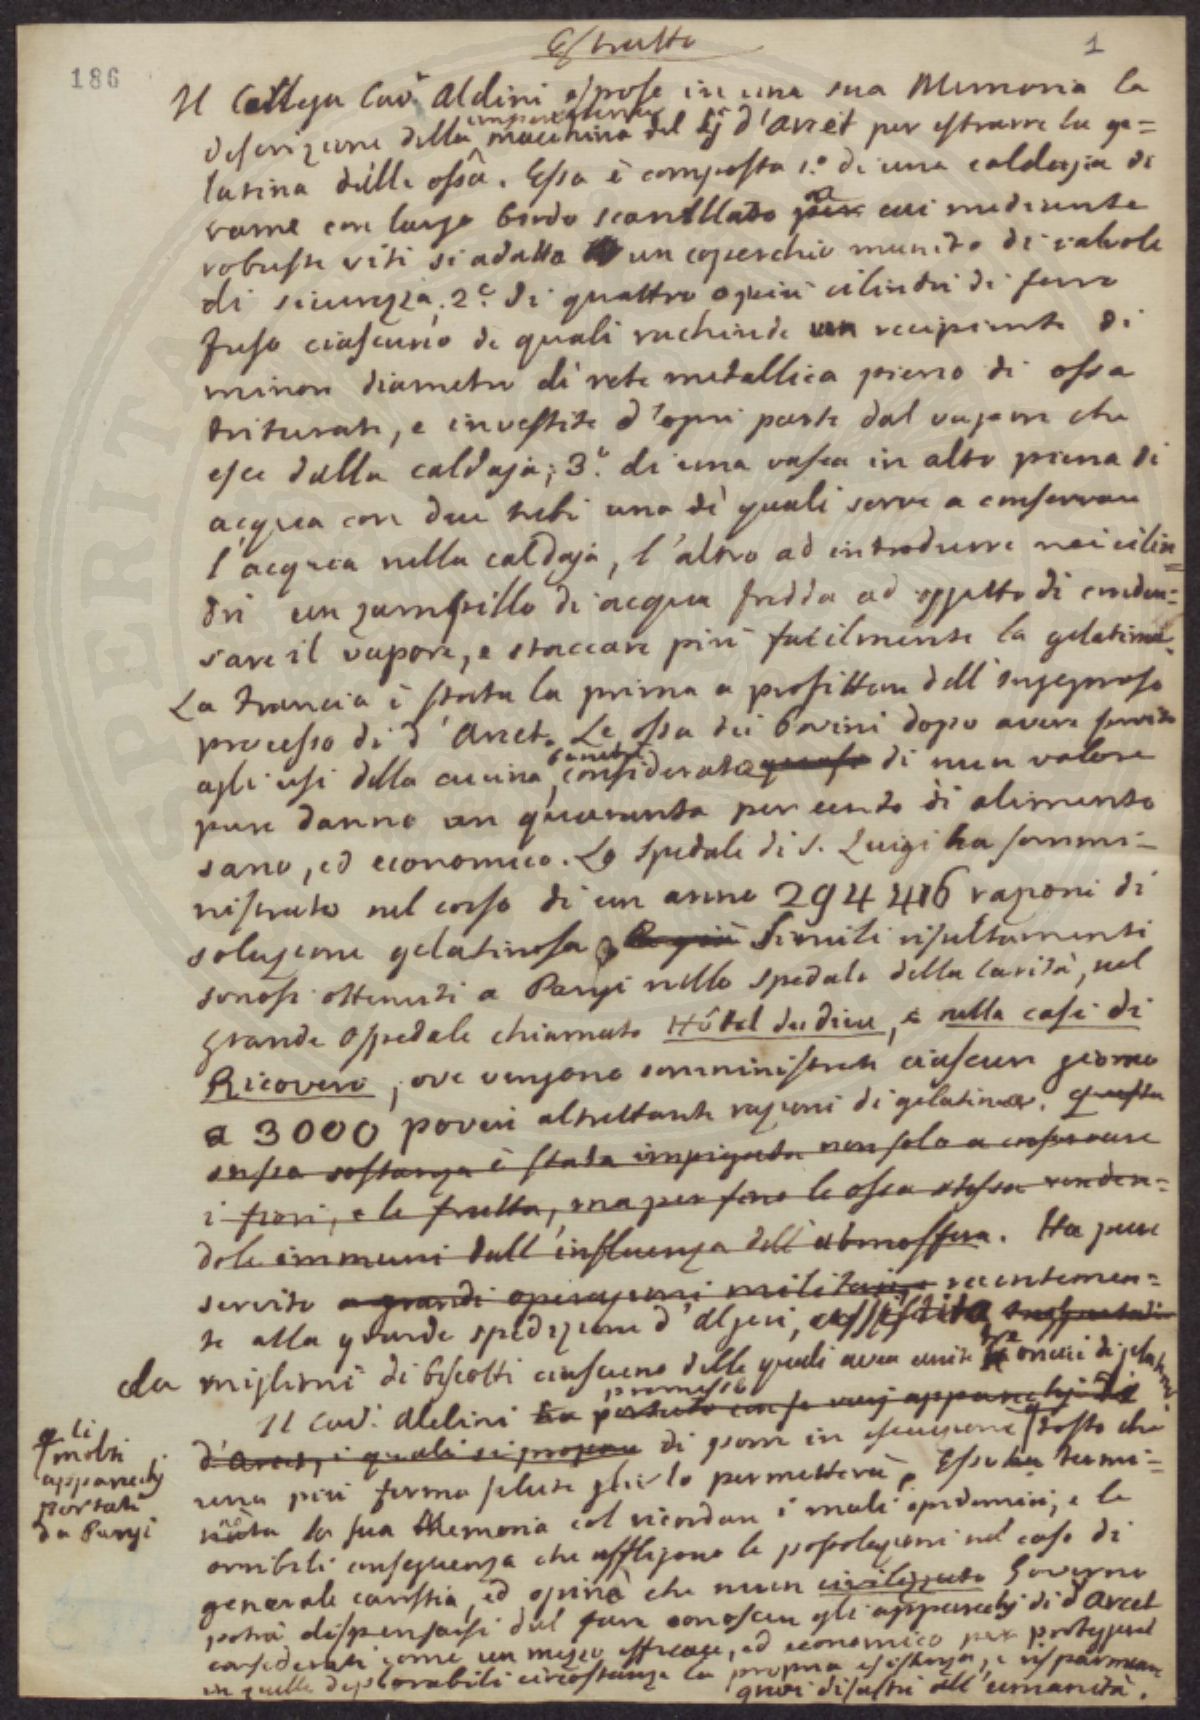 186
Estratto
1
Il Collega Cav. Aldini espose in una sua Memoria la
descrizione della macchina del Sig. d'Arcet per estrarre la ge=
latina dalle ossa. Essa è composta 1.° di una caldaja di
rame con largo bordo scanellato a cui mediante
robuste viti si adatta un coperchio munito di valvole
di sicurezza. 2.° di quattro o più cilindri di ferro
fuso ciascuno de quali rachiude un recipiente di
minor diametro di rete metallica pieno di ossa
triturate, e investite d'ogni parte dal vapore che
esce dalla caldaja; 3.° di una vasca in alto piena di
acqua con due tubi uno de' quali serve a conservare
l'acqua nella caldaja, l'altro ad introdurre nei cilin=
dri un zampillo di acqua fredda ad oggetto di conden=
sare il vapore, e staccare più facilmente la gelatina.
La Francia è stata la prima a profittare dell'ingegnoso
processo di d'Arcet. Le ossa dei bovini dopo avere servito
agli usi della cucina, considerate quasi di niun valore
pure danno un quaranta per cento di alimento
sano, ed economico. Lo spedale di S. Luigi ha sommi=
nistrato nel corso di un anno 294 416 razioni di
soluzione gelatinosa. Simili risultamenti
sonosi ottenuti a Parigi nello spedale della Carità, nel
grande Ospedale chiamato Hôtel du dieu, e nelle case di
Ricovero, ove vengono somministrate ciascun giorno
a 3000 poveri altrettante razioni di gelatina. questa
stessa sostanza è stata impiegata non solo a conservare
i fiori, e le frutta, ma per fino le ossa stesse renden=
dole immuni dall'influenza dell'atmosfera. Ha pure
servito a grandi operazioni militari, e recentemen=
te alla grande spedizione d'Algeri,
da migliaia di biscotti ciascuno delle quali avea unite oncie di gelatina.
promesso
Il Cav. Aldini ha portato con se varj apparecchj di
d'Arcet, i quali si propone di porre in esecuzione tosto che
gli
molti
apparecchj
portati
da Parigi
una più ferma salute glielo permetterà. Esso ha termi=
nato la sua Memoria col ricordare i mali epidemici, e le
orribili conseguenze che affligono le popolazioni nel caso di
generale carestia, ed opina che niun civilizzato Governo
potrà dispensarsi dal fare conoscere gli apparecchj di d'Arcet
considerati come un mezzo efficace, ed economico per proteggere
in quelle deplorabili circostanze la propria esistenza, e risparmiare
gravi disastri all'umanità.